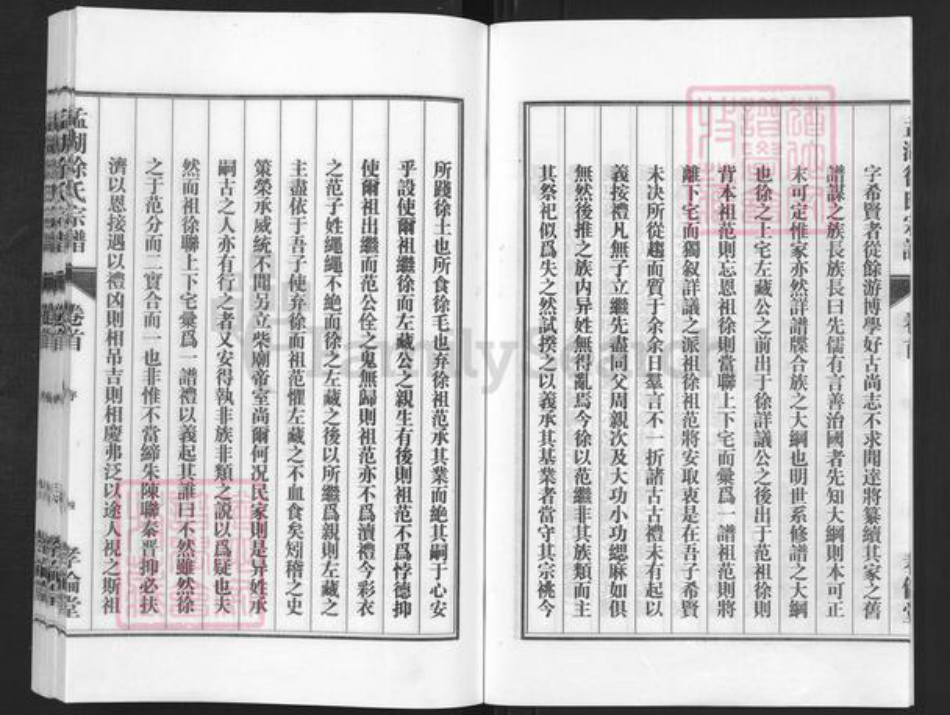 字希賢者從餘游博學好古尚志不求聞達將纂續其家之舊
譜謀之族長族長曰先儒有言善治國者先知大綱則本可正
末可定惟家亦然詳譜牒合族之大綱也明世系修譜之大綱
也徐之上宅左藏公之前出于徐詳議公之後出于范祖徐則
背本祖范則忘恩祖徐則當聯上下宅而彙爲一譜祖范則將
離下宅而獨叙詳議之派祖徐祖范將安取衷是在吾子希賢
未决所從趨而質于余余日羣言不一折諸古古禮未有起以
義按禮凡無子立繼先盡同父周親次及大功小功緦麻如俱
無然後推之族内异姓無得亂焉今徐以范繼非其族類而主
其祭祀似爲失之然試揆之以義承其基業者當守其宗桃今
所踐徐土也所食徐毛也弃徐祖范承其業而絶其嗣于心安
乎設使爾祖繼徐而左藏公之親生有後則祖范不爲悖德抑
使爾祖出繼而范公佺之鬼無歸則祖范亦不爲瀆禮今彩衣
之范子姓繩繩不絶而徐之左藏之後以所繼爲親則左藏之
主盡依于吾子使弃徐而祖范懼左藏之不血食矣矧稽之史
策榮承威統不聞另立柴廟帝室尚爾何况民家則是异姓承
嗣古之人亦有行之者又安得執非族非類之説以爲疑也夫
然而祖徐聯上下宅彙爲一譜禮以義起其誰曰不然雖然徐
之于范分而二實合而一也非惟不當締朱陳聯秦晋抑必扶
濟以恩接遇以禮凶則相吊吉則相慶弗泛以途人視之斯祖
孟湖徐氏宗譜
卷首
序
孝倫堂
FamilySearch